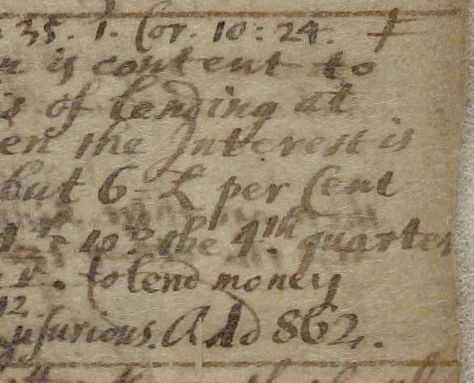 35. 1. Cor. 10: 24. †
is content to
of lending at
en the Interest is
but 6 £ per Cent
10 the 4.th quarter
. to lend money
12
usurious. Add 862.